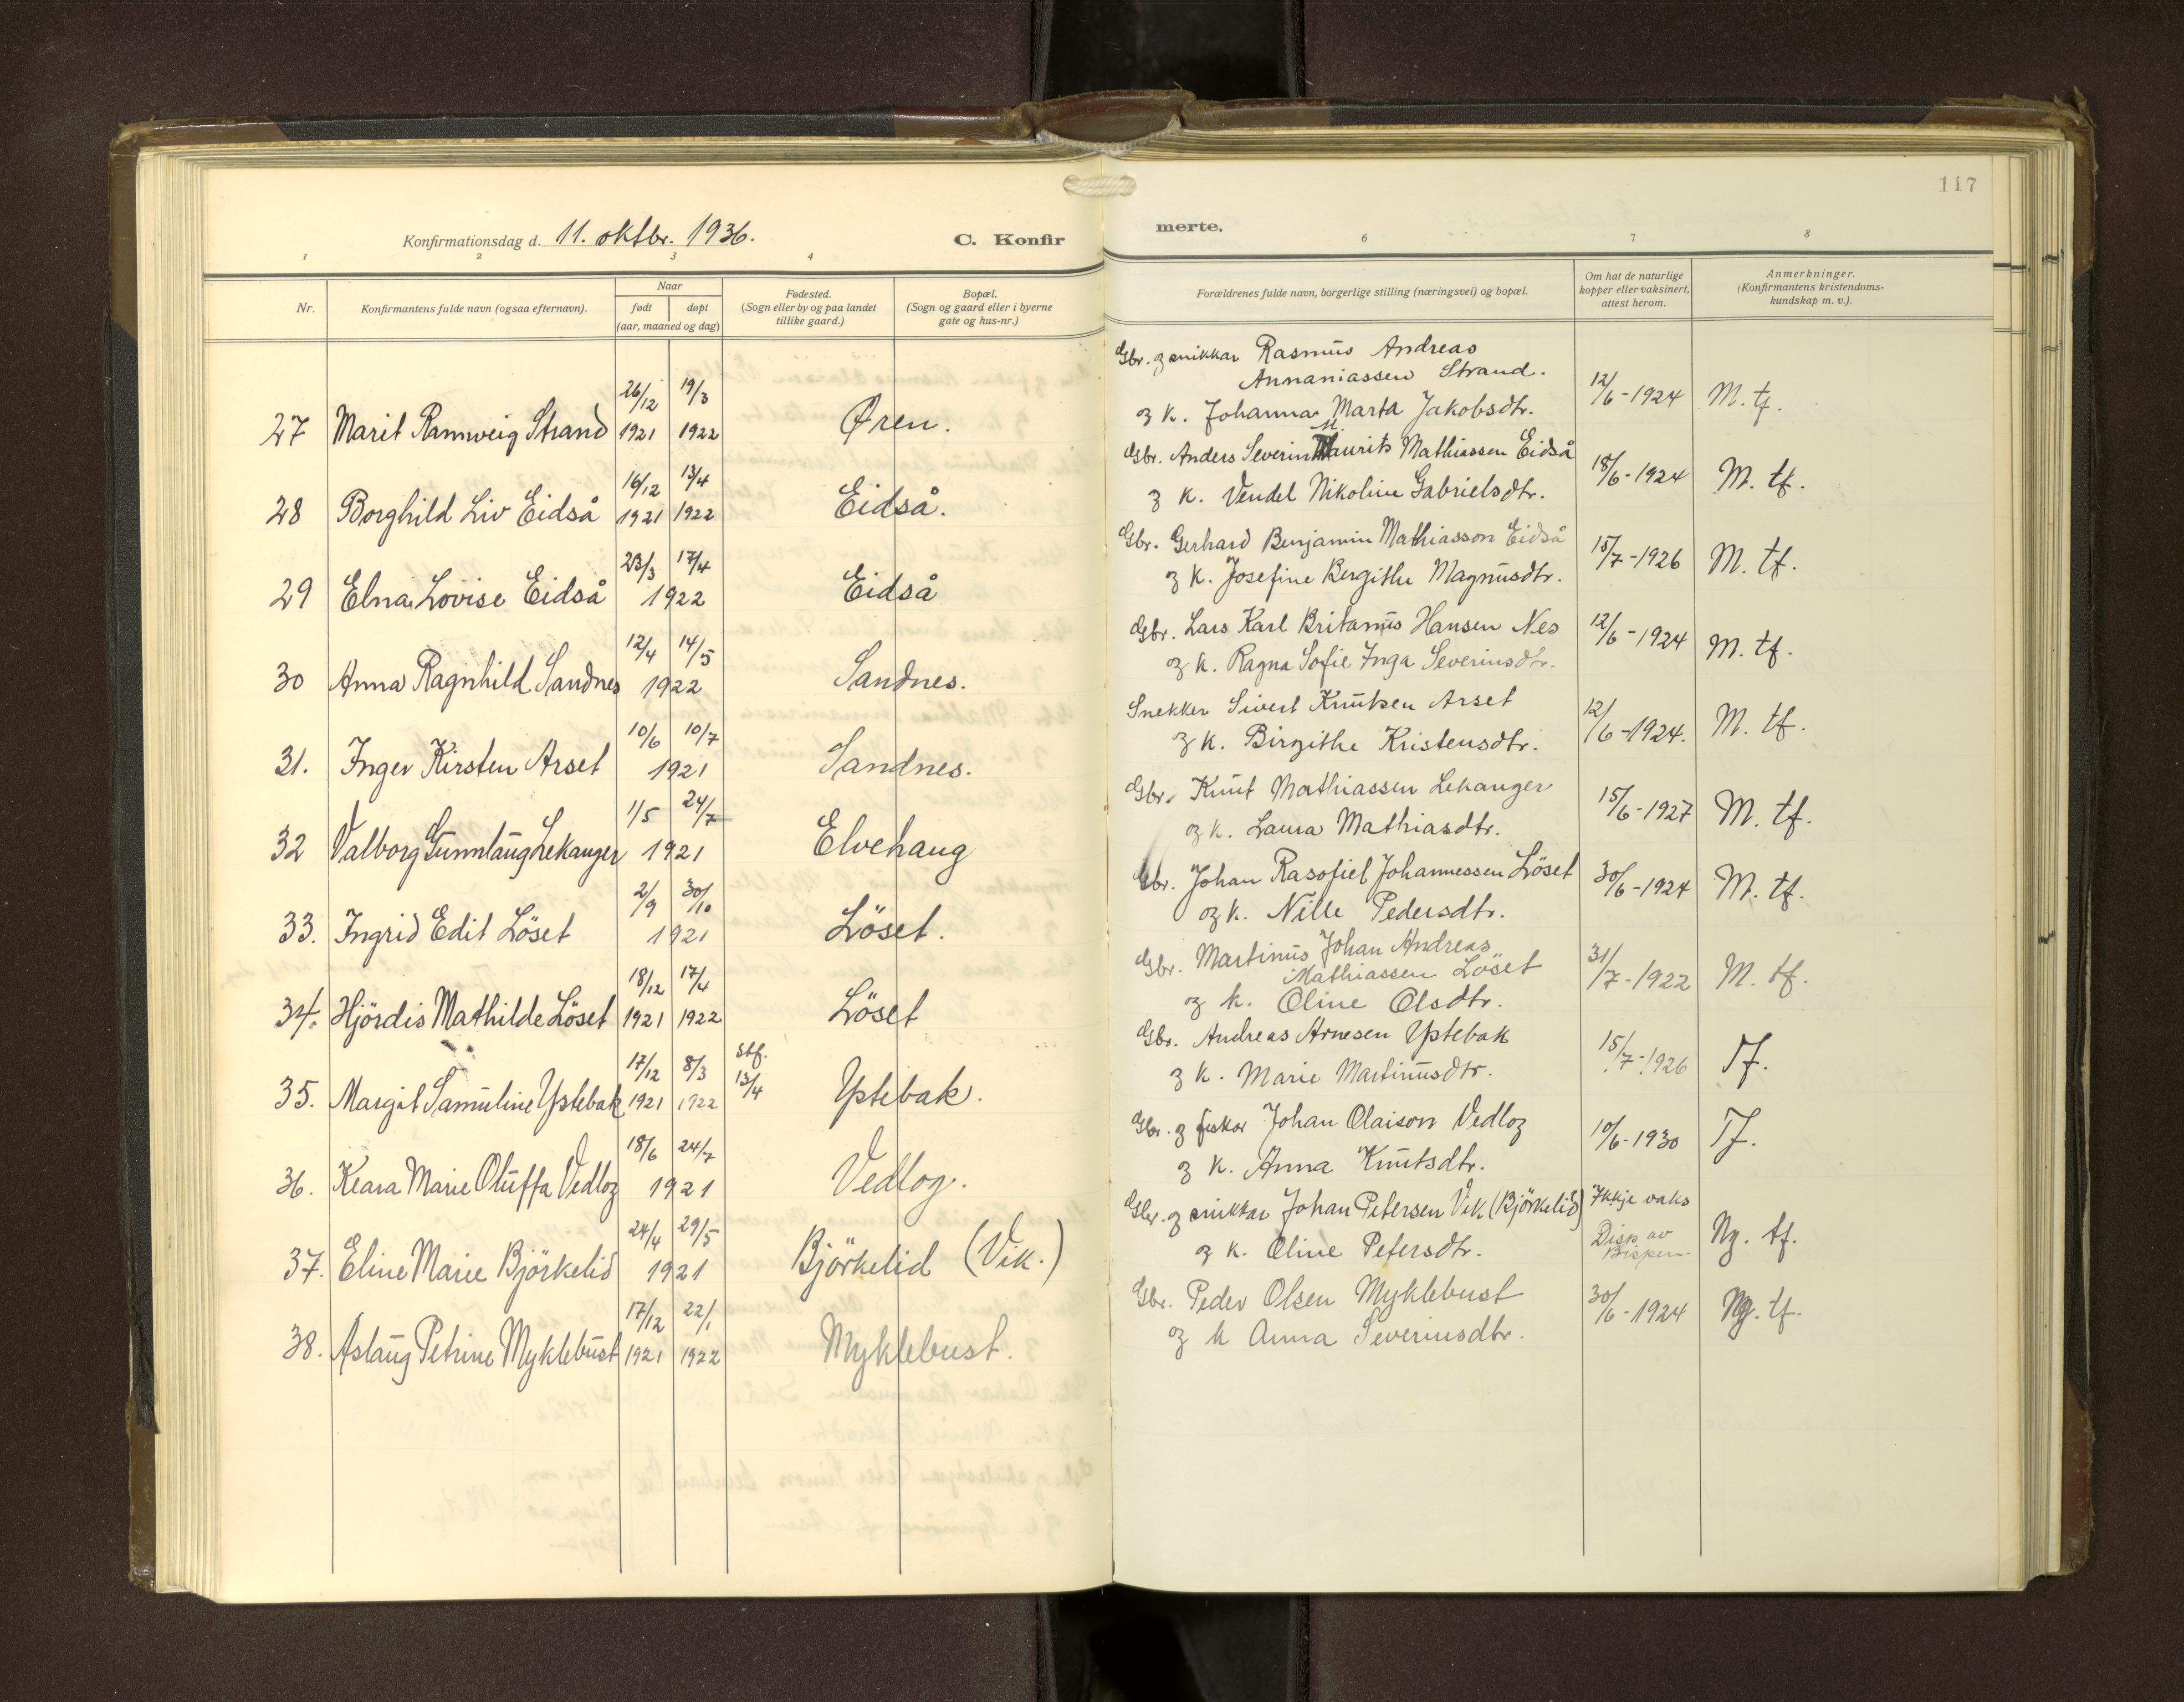 117
Konfirmationsdag d. 11. oktbr. 1936.
C. Konfirmerte.
1 2 3 4 6 7 8
Nr.
Konfirmantens fulde navn (ogsaa efternavn).
Naar
født døpt
(aar, maaned og dag)
Fødested.
(Sogn eller by og paa landet
tillike gaard.)
Bopæl.
(Sogn og gaard eller i byerne
gate og hus-nr.)
Forældrenes fulde navn, borgerlige stilling (næringsvei) og bopæl.
Om hat de naturlige
kopper eller vaksinert,
attest herom.
Anmerkninger.
(Konfirmantens kristendoms-
kundskap m. v.).
26/12 19/3 Gbr. og snikkar Rasmus Andreas
Annaniassen Strand.
27 Marit Rannveig Strand 1921 1922 Øren. og k. Johanna Marta Jakobsdtr. 12/6-1924 M. tf.
16/12 13/4 Gbr. Anders Severin Maurits Mathiassen Eidså
28 Borghild Liv Eidså 1921 1922 Eidså. og k. Vendel Nikoline Gabrielsdtr. 18/6-1924 M. tf.
23/3 17/4 Gbr. Gerhard Benjamin Mathiasson Eidså
29 Elna Lovise Eidså 1922 Eidså og k. Josefine Bergithe Magnusdtr. 15/7-1926 M. tf.
12/4 14/5 Gbr. Lars Karl Britanus Hansen Nes
30 Anna Ragnhild Sandnes 1922 Sandnes. og k. Ragna Sofie Inga Severinsdtr. 12/6-1924 M. tf.
10/6 10/7 Snekker Sivert Knutsen Arset
31. Inger Kirsten Arset 1921 Sandnes. og k. Birgithe Kristensdtr. 12/6-1924. M. tf.
1/5 24/7 Gbr. Knut Mathiassen Lekanger
32 Valborg Gunnlaug Lekanger 1921 Elvehaug og k. Laura Mathiasdtr. 15/6-1927 M. tf.
2/9 30/10 Gbr. Johan Rasofiel Johannessen Löset
33. Ingrid Edit Löset 1921 Löset. og k. Nille Pedersdtr. 30/6-1924 M. tf.
18/12 17/4 Gbr. Martinus Johan Andreas
Mathiassen Löset
34. Hjördis Mathilde Löset 1921 1922 Löset og k. Oline Olsdtr. 31/7-1922 M. tf.
17/12 8/3 Stf. 13/4 Gbr. Andreas Arnesen Ystebak
35. Margit Samuline Ystebak 1921 1922 Ystebak. og k. Marie Martinusdtr. 15/7-1926 Tf.
18/6 24/7 Gbr. og fiskar Johan Olaison Vedlog
36. Keara Marie Oluffa Vedlog 1921 Vedlog. og k. Anna Knutsdtr. 10/6-1930 Tf.
24/4 29/5 Gbr. og snikkar Johan Petersen Vik (Björkelid) Ikkje vaks
37. Eline Marie Björkelid 1921 Björkelid (Vik.) og k. Oline Petersdtr. Disp av Bispen. Ng. tf.
17/12 22/1 Gbr. Peder Olsen Myklebust
38. Aslaug Petrine Myklebust 1921 1922 Myklebust. og k Anna Severinsdtr. 30/6-1924 Ng. tf.